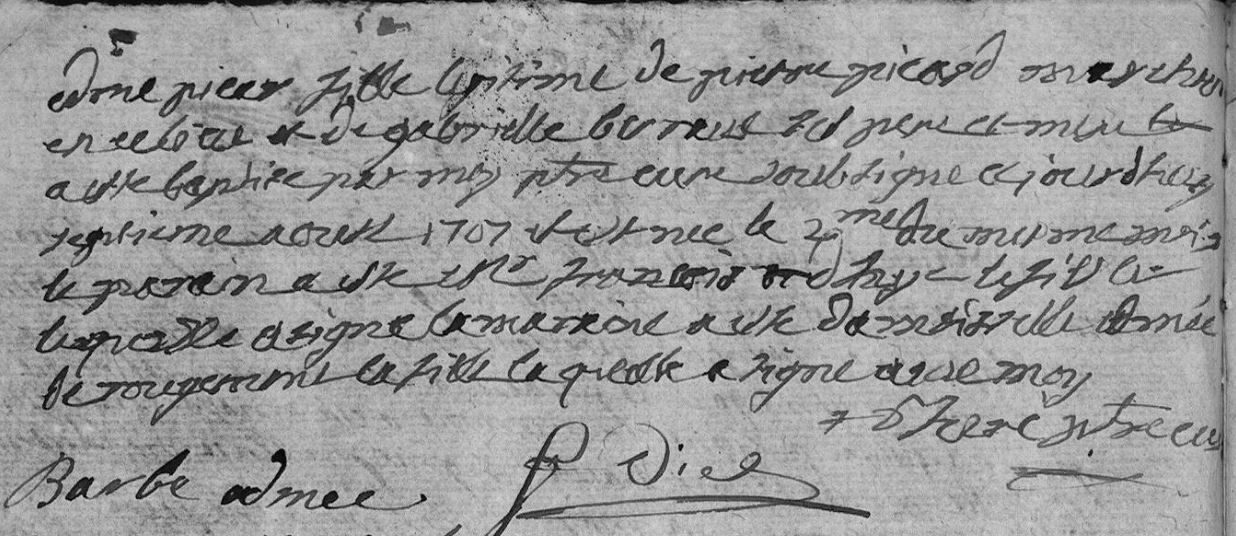 edme picar fille legitime de pierre picard marchan
en ce lieu et de gabrielle ses pere et mere
a este baptisee par moy ptre curé soubsigné ce jourdhuy
septieme aoust 1707 et est nee le du mesme mois
le parain a este Mr francois le fils
lequelle a signe la maraine a este damoiselle edmée
de rougemont la fille laquelle a signe avec moy
ptre cu
Barbe edmee